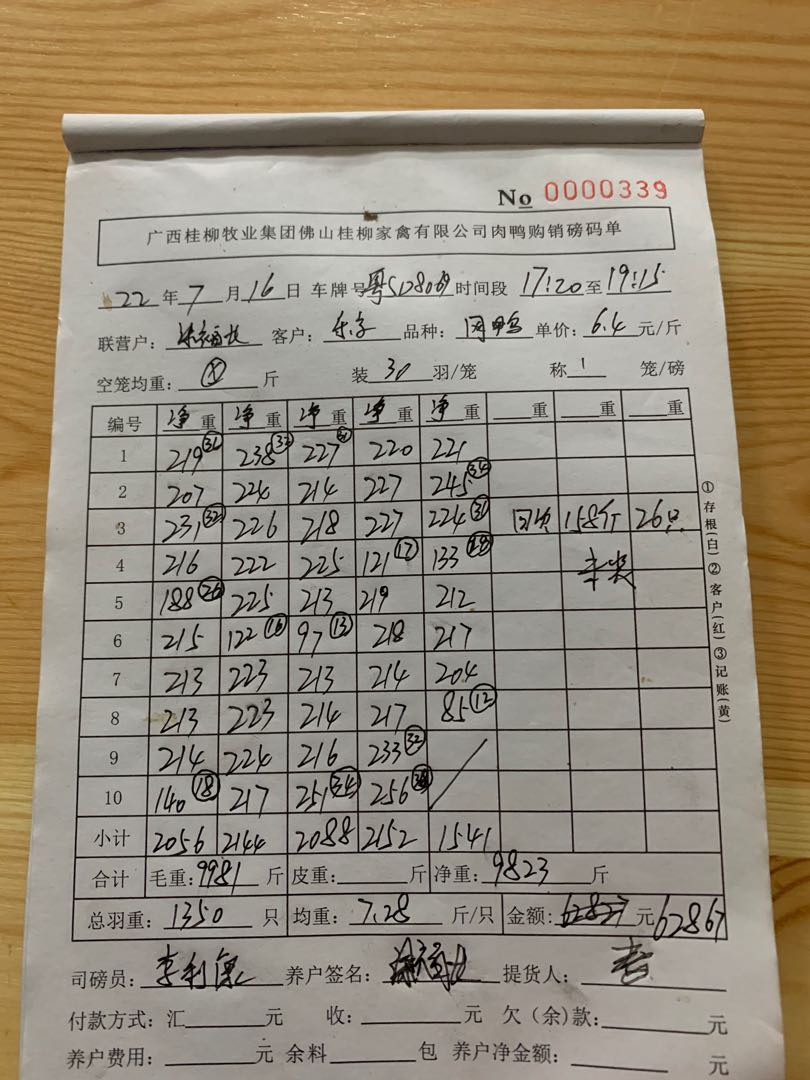 No 0000339
广西桂柳牧业集团佛山桂柳家禽有限公司肉鸭购销磅码单
22 年 7 月 16 日 车牌号 粤 时间段 17:20 至 19:15
联营户: 客户: 乐字 品种: 单价: 6.4 元/斤
空笼均重: 斤 装 30 羽/笼 称 1 笼/磅
编号 净重 净重 净重 净重 净重 重 重 重
1 219 (31) 238 (32) 227 (31) 220 221
2 207 224 214 227 245 (34)
3 231 (32) 226 218 227 224 (31) 158斤 26只
4 216 222 225 121 (17) 133
5 188 (26) 225 213 219 212
6 215 122 (16) 97 (13) 218 217
7 213 223 213 214 204
8 213 223 214 217 85 (12)
9 214 224 216 233 (32)
10 140 (18) 217 251 (34) 256
小计 2056 2144 2088 2152 1541
合计 毛重: 9981 斤 皮重: 斤 净重: 9823 斤
总羽重: 1350 只 均重: 7.28 斤/只 金额: 62827 元 62867
司磅员: 养户签名: 提货人:
付款方式: 汇 元 收: 元 欠(余)款: 元
养户费用: 元 余料 包 养户净金额: 元
①存根(白)②客户(红)③记账(黄)